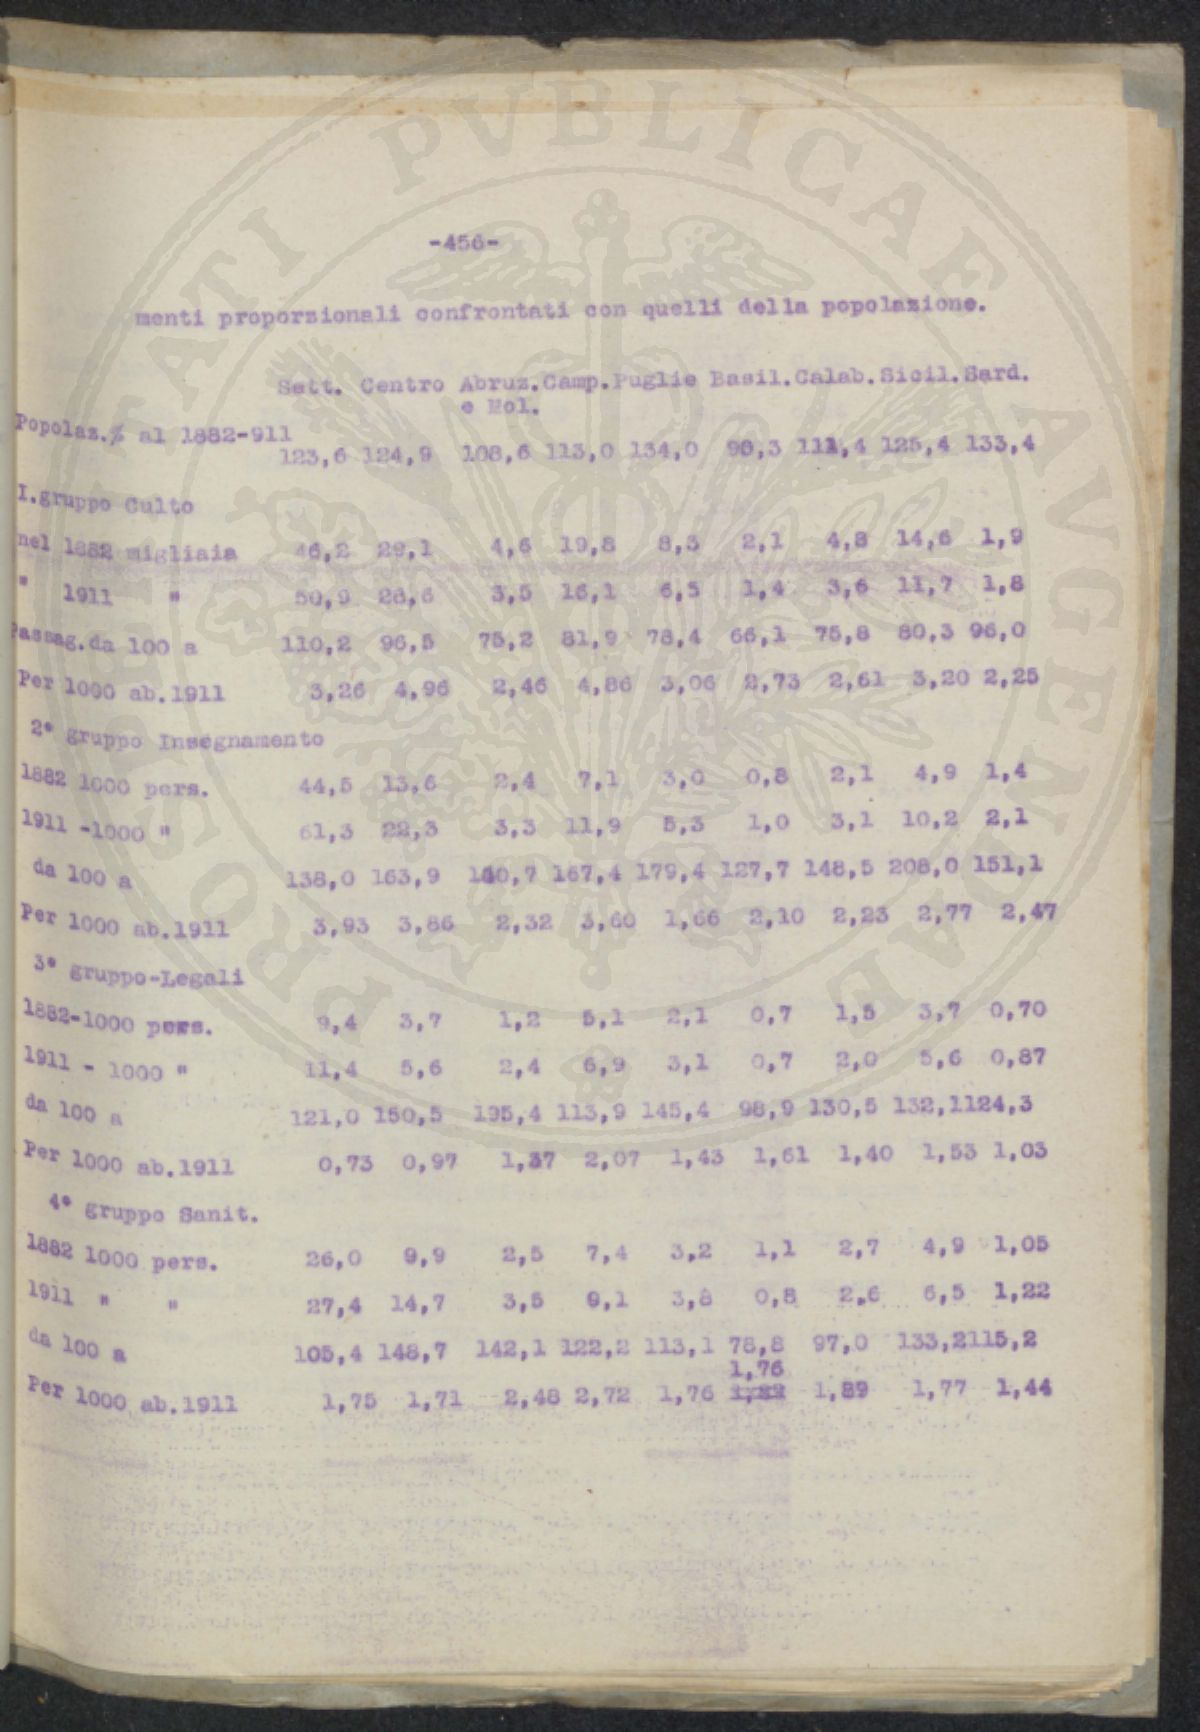 -456-
menti proporzionali confrontati con quelli della popolazione.
Sett. Centro Abruz. Camp. Puglie Basil. Calab. Sicil. Sard.
e Mol.
Popolaz.% al 1882-911
123,6 124,9 108,6 113,0 134,0 90,3 111,4 125,4 133,4
I.gruppo Culto
nel 1882 migliaia 46,2 29,1 4,6 19,8 8,3 2,1 4,8 14,6 1,9
" 1911 " 50,9 28,6 3,5 16,1 6,5 1,4 3,6 11,7 1,8
Passag.da 100 a 110,2 96,5 75,2 81,9 78,4 66,1 75,8 80,3 96,0
Per 1000 ab.1911 3,26 4,96 2,46 4,86 3,06 2,73 2,61 3,20 2,25
2° gruppo Insegnamento
1882 1000 pers. 44,5 13,6 2,4 7,1 3,0 0,8 2,1 4,9 1,4
1911 -1000 " 61,3 22,3 3,3 11,9 5,3 1,0 3,1 10,2 2,1
da 100 a 138,0 163,9 140,7 167,4 179,4 127,7 148,5 208,0 151,1
Per 1000 ab.1911 3,93 3,86 2,32 3,60 1,66 2,10 2,23 2,77 2,47
3° gruppo-Legali
1882-1000 pers. 9,4 3,7 1,2 5,1 2,1 0,7 1,5 3,7 0,70
1911 - 1000 " 11,4 5,6 2,4 6,9 3,1 0,7 2,0 5,6 0,87
da 100 a 121,0 150,5 195,4 113,9 145,4 98,9 130,5 132,1124,3
Per 1000 ab.1911 0,73 0,97 1,37 2,07 1,43 1,61 1,40 1,53 1,03
4° gruppo Sanit.
1882 1000 pers. 26,0 9,9 2,5 7,4 3,2 1,1 2,7 4,9 1,05
1911 " " 27,4 14,7 3,5 9,1 3,8 0,8 2,6 6,5 1,22
da 100 a 105,4 148,7 142,1 122,2 113,1 78,8 97,0 133,2115,2
1,76
Per 1000 ab.1911 1,75 1,71 2,48 2,72 1,76 1,89 1,77 1,44
PROSPERITATI PVBLICAE AVGENDAE